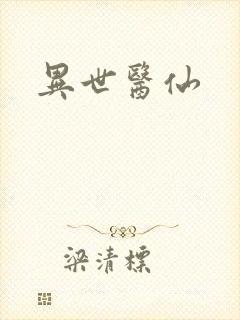 異世醫仙
梁清標